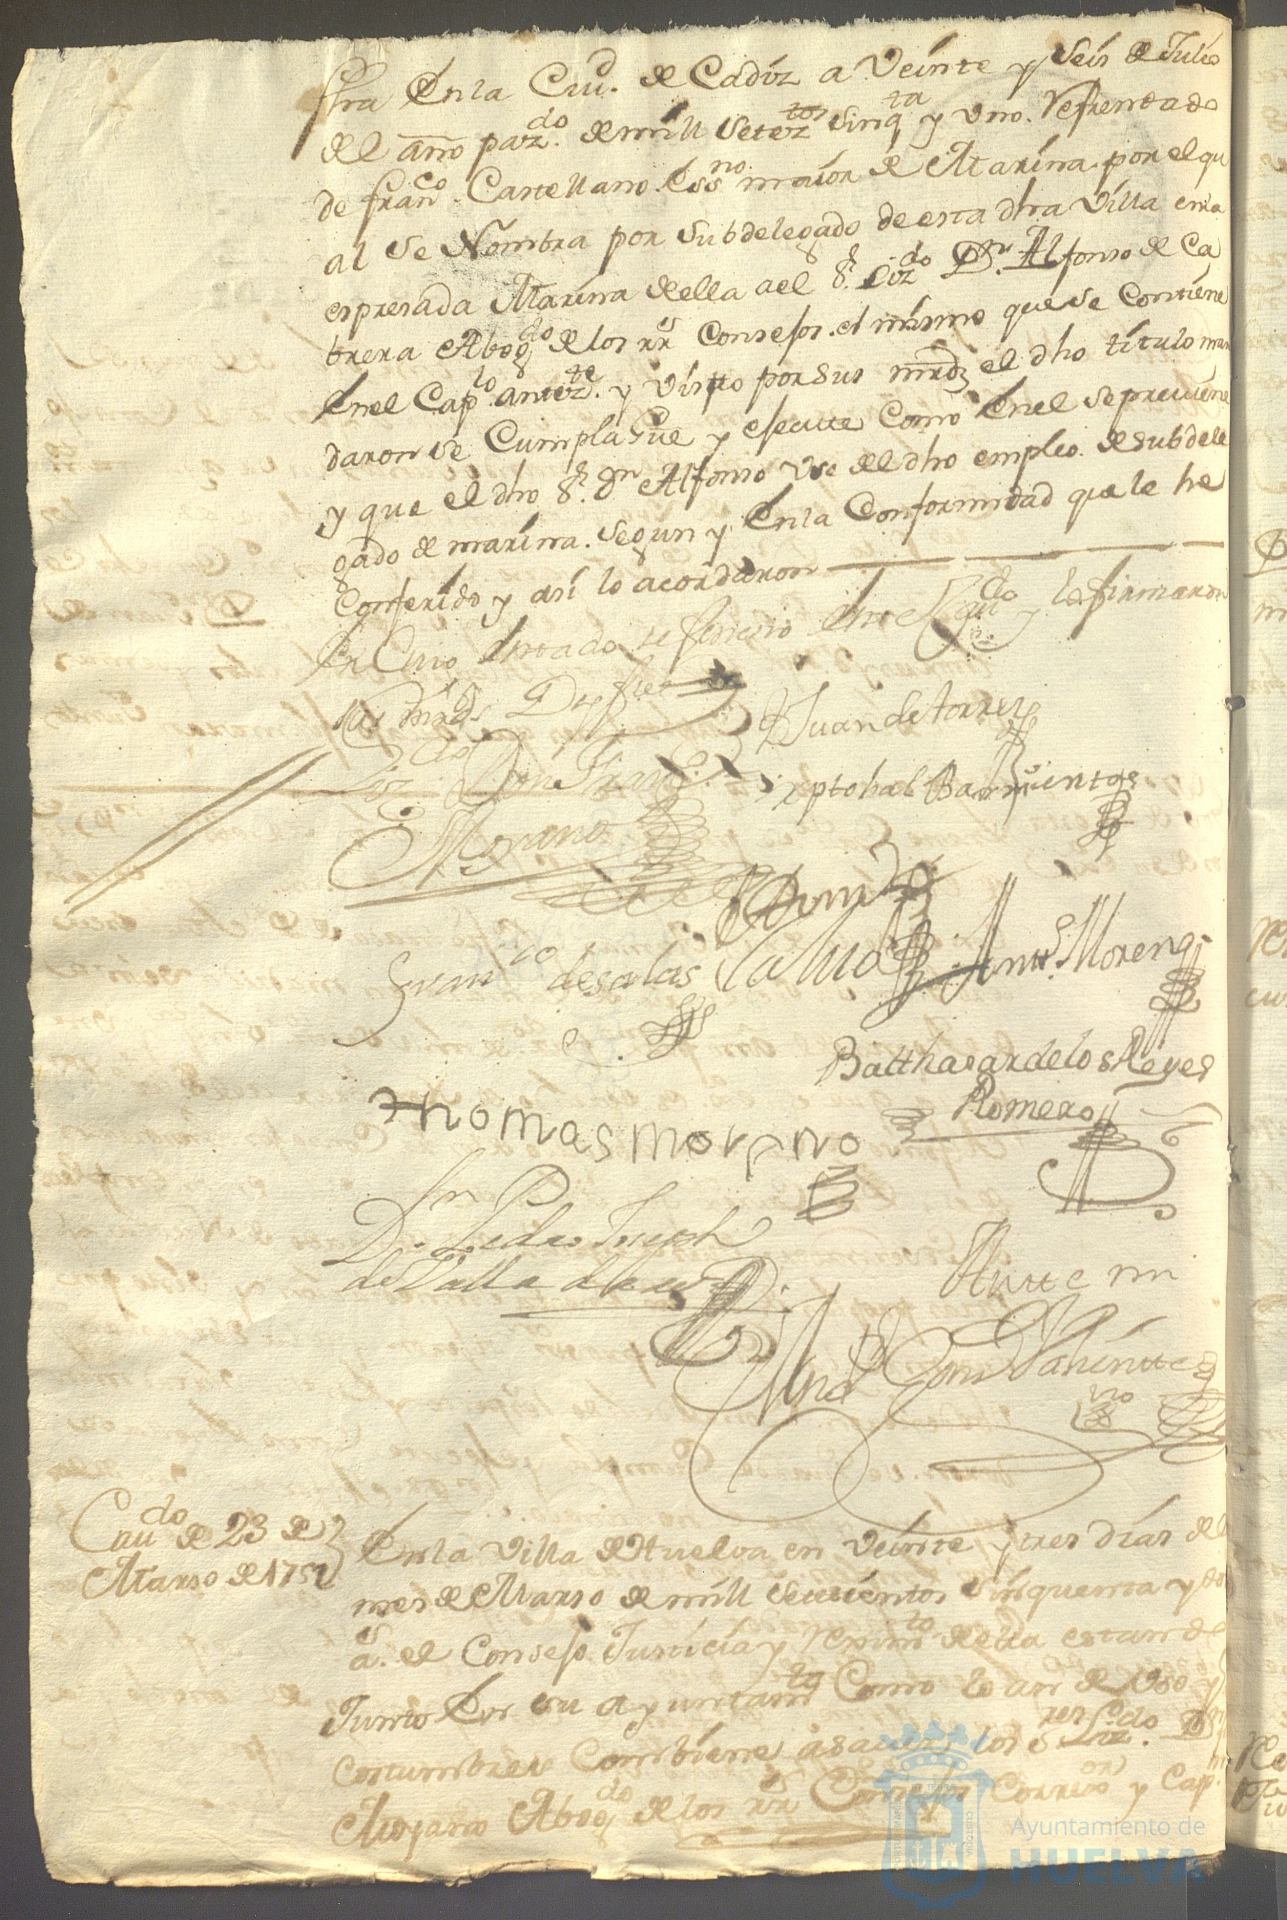 fha En la Ciud. de Cadiz a Veinte y Seis de Julio
del año pazdo. de mill Seteztos Sinqta y Uno. Refrendado
de Franco. Castellano Essno. maior de Marina por el qu
al Se Nombra por Subdelegado de esta dha Villa en la
espresada Marina della a el Sr. Lizdo. Dn. Alfonso de Ca
brera Abogdo de los Rs Consejos. el mismo que se Contiene
En el Caplo. antezte. y Visto por Sus mrds el dho titulo man
daron se Cumpla Gue y execute Como En el Sepreviene
y que el dho Sr. Dn Alfonso Use del dho empleo de Subdele
gado de marina. Segun y En la Conformidad que le he
Conferido y asi lo acordaron
En Cuio estado se fenecio Este Cauildo y lo firmaron
sus mrds
Lizdo Don Franco.
Juan de torres
Moyano
Xptobal Barrientos
Franco de Salas
Calvo
Antto. Moreno
Balthasar de los Reyes
Romero
thomas moreno
Dn Pedro Joseph
de Valladares
Ante mi
Valiente
Cauldo de 23 de
Marso de 1752
En la Villa de Huelva en Veinte y tres dias del
mes de Marso de mill Setesientos Sinquenta y do
s a. el Consejo Justicia y Reximto della estando
Junto En su ayuntamto Como lo an de Uso y
Costumbre Combiene asauer los Sres Lizdo. Dn
Moyano Abogdo de los Rs Consejos Corror y Capn
Ayuntamiento de
HUELVA